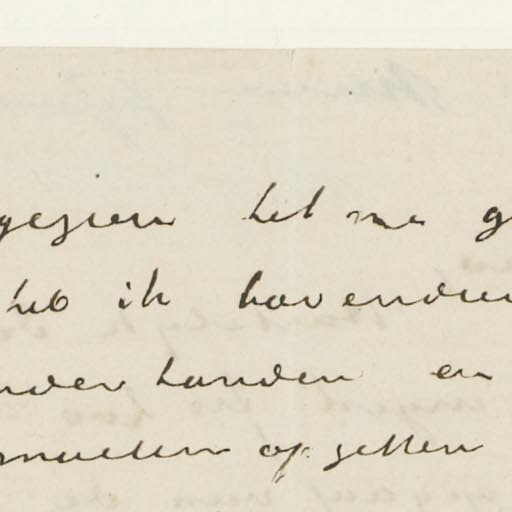 gezien het me g
heb ik bovendien
nder handen en
moeten opzetten